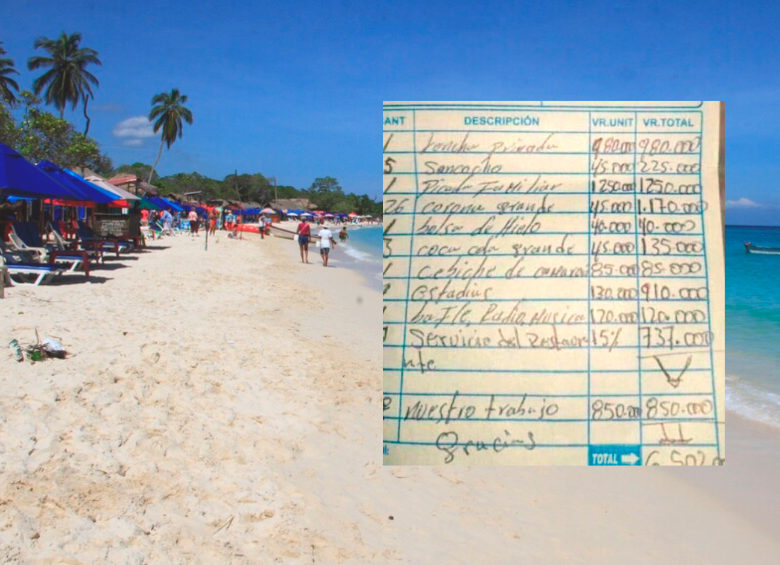 ANT DESCRIPCIÓN VR.UNIT VR.TOTAL
1 Lancha privada 980.000 980.000
5 Sancocho 45.000 225.000
1 Picada Familiar 1250.000 1250.000
26 corona grande 45.000 1.170.000
1 bolsa de Hielo 40.000 40.000
3 coca cola grande 45.000 135.000
1 cebiche de 85.000 85.000
estadius 130.000 910.000
1 bafle, Radio, Musica 120.000 120.000
Servicio del Restaura 15% 737.000
nte
nuestro trabajo 850.000 850.000
Gracias
TOTAL 6.502